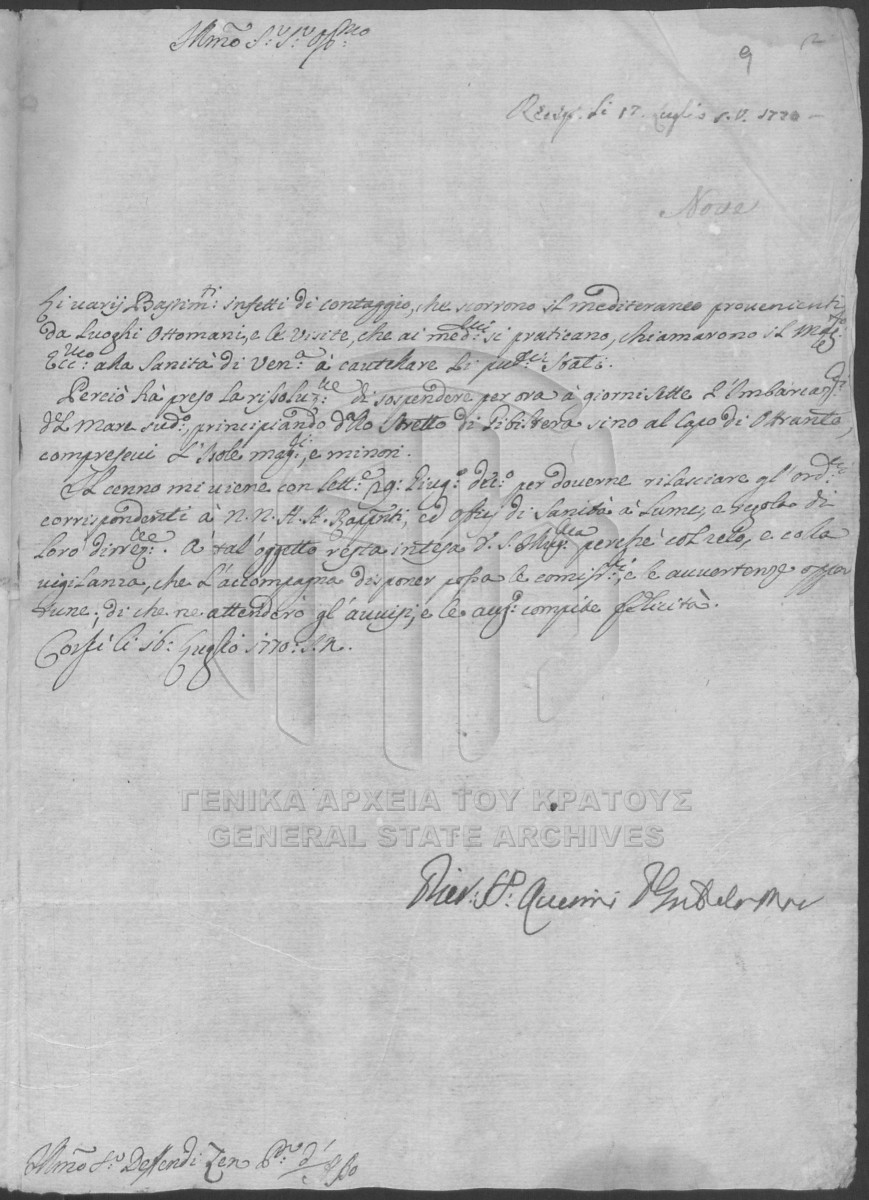 Illmo Sr Sr Ossmo
9
Recep. li 17 Luglio s. v. 1770
Nove
Li varij Bastimti infetti di contaggio, che scorrono il mediteraneo provenienti
da Luoghi Ottomani, e le visite, che ai medmi si praticano, chiamarono il
Eccmo alla Sanità di Vena à cautelare li pubci Stati.
Perciò hà preso la risoluzne di sospendere per ora à giorni sette l'Imbarcazni
del Mare sudo principiando dallo Stretto di Gibilterra sino al Capo di Ottranto,
compresevi l'Isole magri, e minori.
Il cenno mi viene con lette 29: Giugo deco per doverne rilasciare gl'ordni
corrispondenti à N. N. H. H. Rapnti, ed Offij di Sanità à Lume, e regola di
loro dirrezne. A tal'oggetto resta intesa V. S. Illma perchè col zelo, e colla
vigilanza, che l'accompagna disponer possa le comissni, e le avvertenze oppor
tune; di che ne attenderò gl'avvisi, e le augo compite felicità.
Corfù li 16: Luglio 1770: S. N.
ΓΕΝΙΚΑ ΑΡΧΕΙΑ ΤΟΥ ΚΡΑΤΟΥΣ
GENERAL STATE ARCHIVES
Pier: Querini
Illmo Sr Deffendi Zen